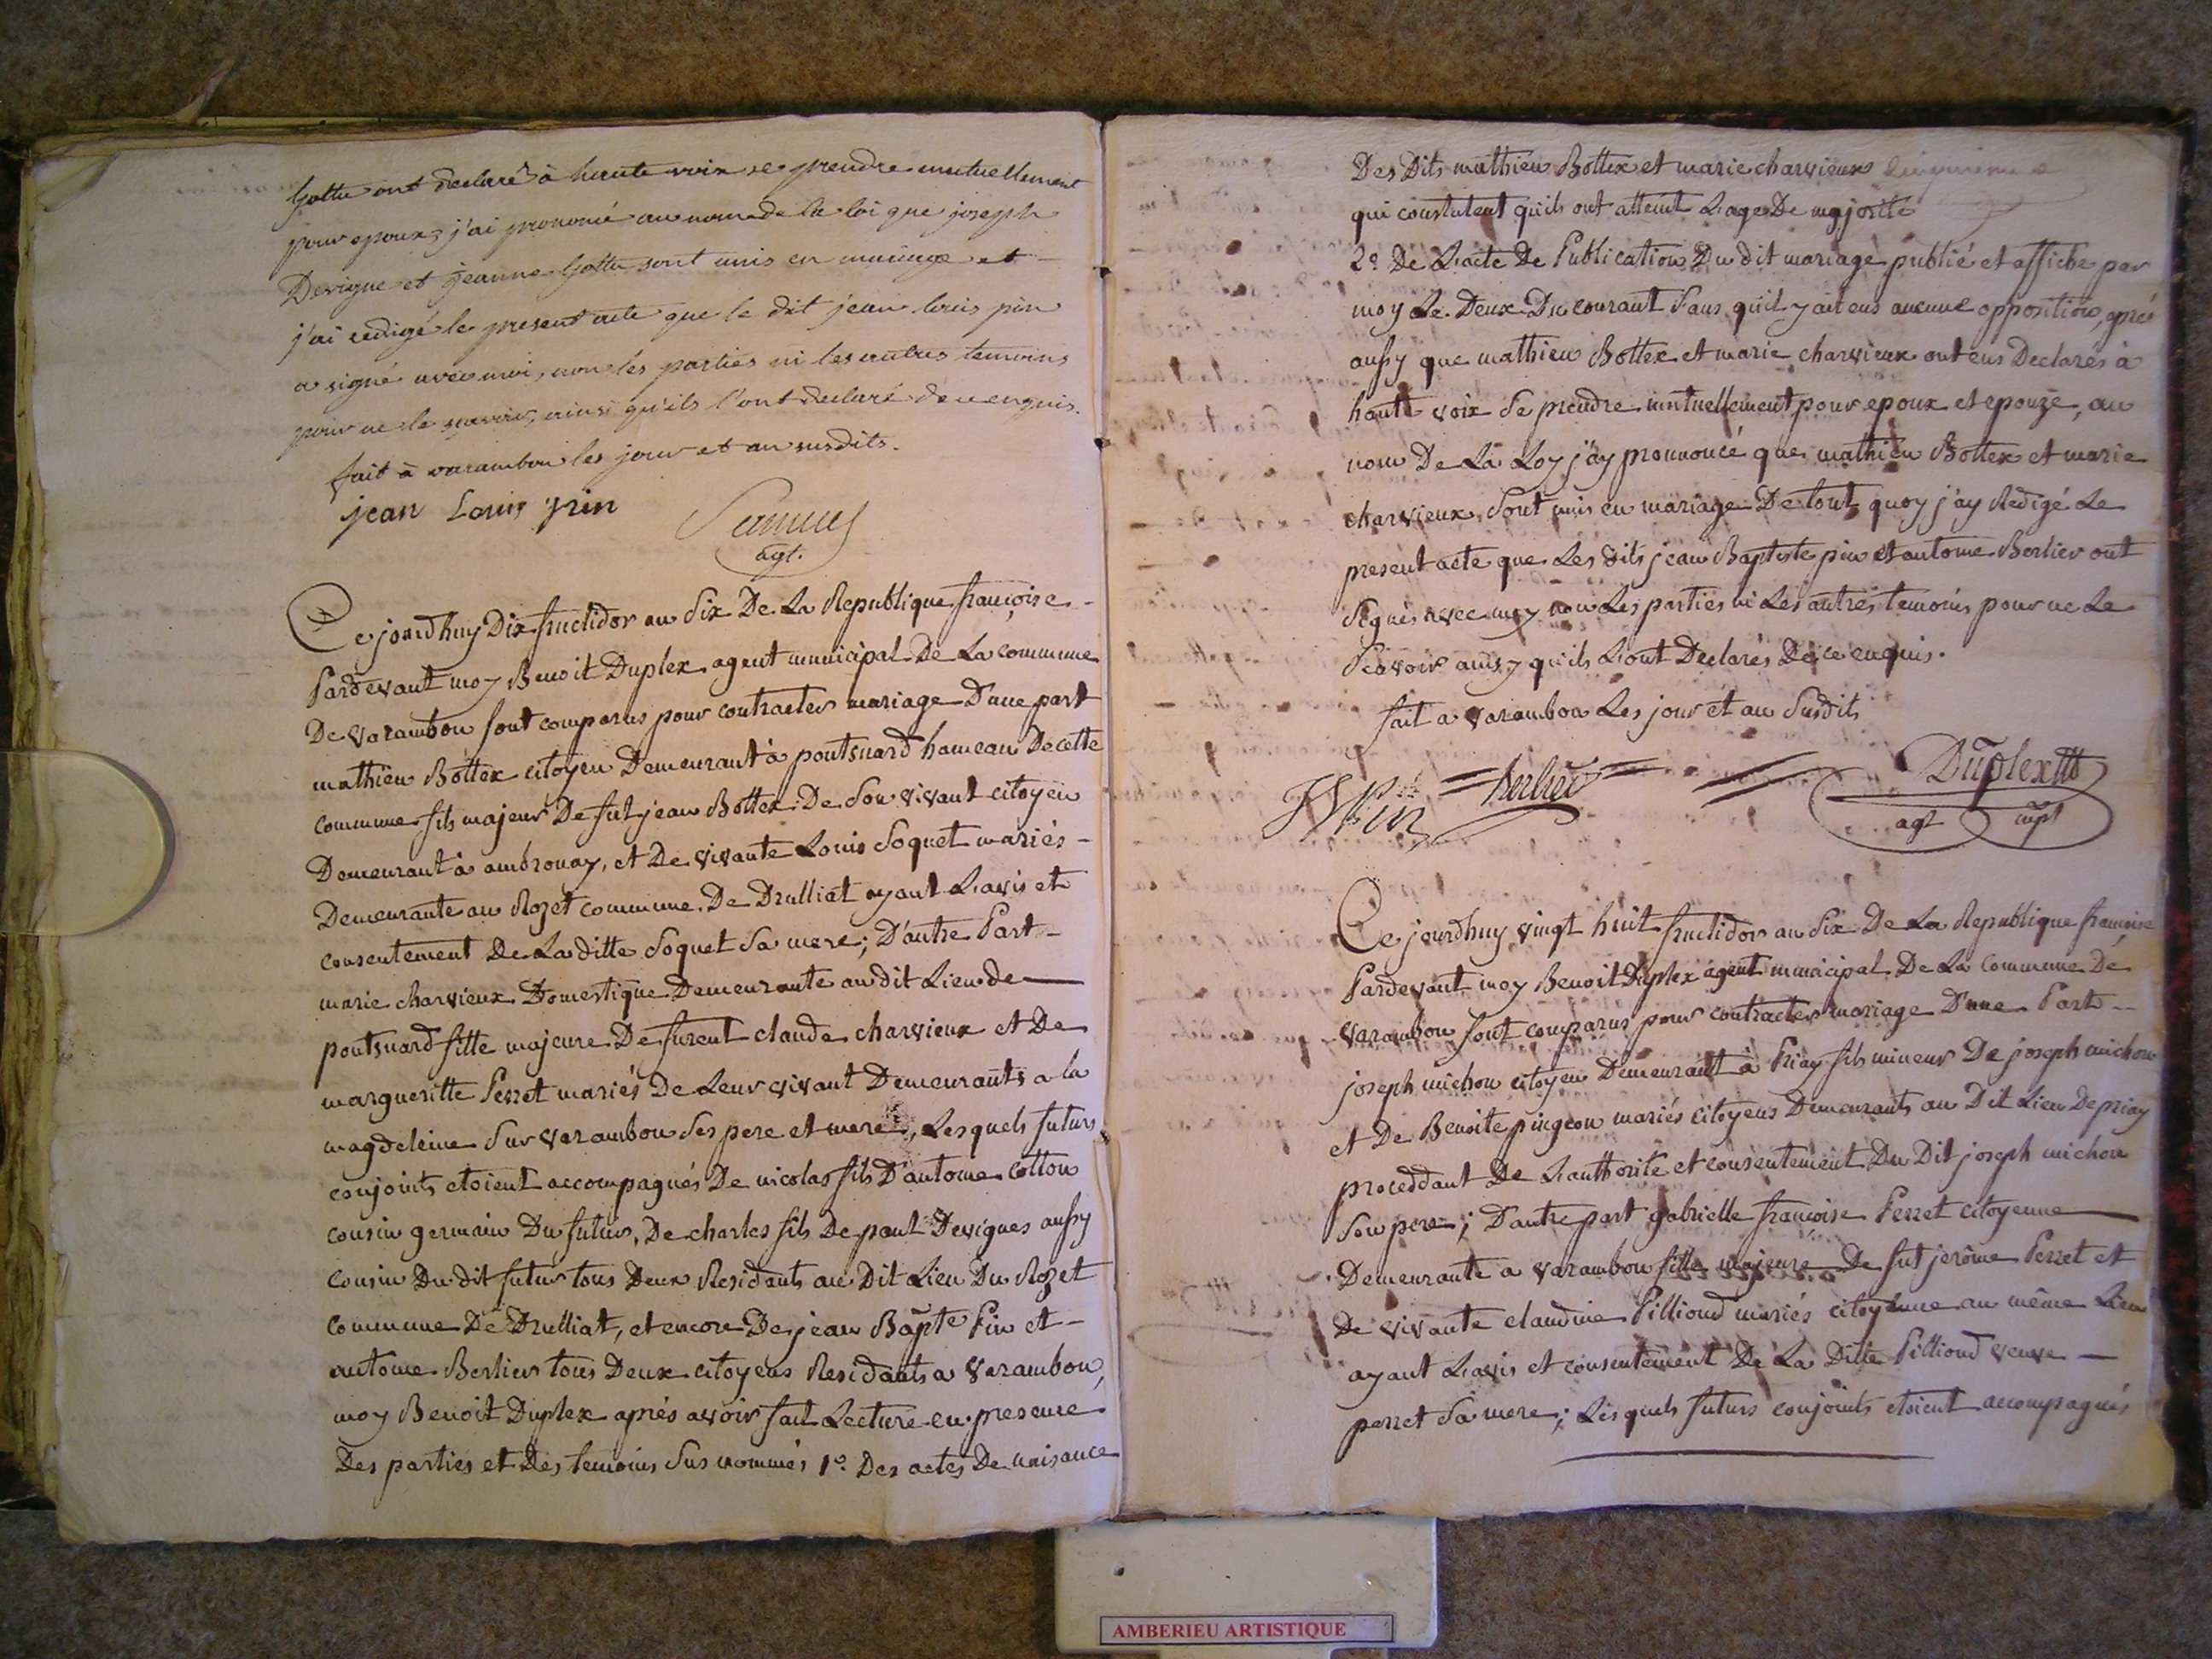 ont declaré à haute voix se prendre mutuellement
pour epoux, j'ai prononcé au nom de la loi que joseph
Devigne et jeanne sont unis en mariage et
j'ai redigé le present acte que le dit jean louis pin
a signé avec moi, non les parties ni les autres temoins
pour ne le sçavoir, ainsi qu'ils l'ont declaré de ce enquis.
fait à varambon les jour et an susdits.
jean Louis pin
agt.
Ce jourdhuy Dix fructidor an Six De La Republique françoise -
Pardevant moy Benoit Duplex agent municipal De La commune
De varambon sont comparus pour contracter mariage D'une part
mathieu Bottex citoyen Demeurant à pontsuard hameau De cette
commune fils majeur De fut jean Bottex De Son vivant citoyen
Demeurant à ambronay, et De vivante Louis Soquet mariés -
Demeurante au Rozet commune De Drulliat ayant L'avis et
consentement De La ditte Soquet Sa mere; D'autre Part -
marie charvieux Domestique Demeurante au dit Lieu de
pontsuard fille majeure De furent claude charvieux et De
margueritte Perret mariés De Leur vivant Demeurants a la
magdeleine Sur varambon Ses pere et mere, Lesquels futurs
conjoints etoient accompagnés De nicolas fils D'antoine Cotton
cousin germain Du futur, De charles fils De paul Devignes aussy
cousin Du dit futur tous Deux Residants au Dit Lieu Du Rozet
commune De Drulliat, et encore De jean Bapte Pin et -
antoine Berlier tous Deux citoyens Residants a varambon,
moy Benoit Duplex aprés avoir fait Lecture en presence
Des parties et Des temoins Sus nommés 1º. Des actes De naisance
Des Dits mathieu Bottex et marie charvieux
qui constatent qu'ils ont atteint L'age De majorité
2º De L'acte De Publication Du dit mariage publié et affiché par
moy Le Deux Du courant Sans qu'il y ait eus aucune opposition, aprés
aussy que mathieu Bottex et marie charvieux ont eus Declarés à
haute voix Se prendre mutuellement pour epoux et epouze, au
nom De La Loy j'ay pronnoncé que mathieu Bottex et marie
charvieux Sont unis en mariage De tout quoy j'ay Redigé Le
present acte que Les dits jean Baptiste pin et antoine Berlier ont
Signés avec moy non Les parties ni Les autres temoins pour ne Le
Scavoir ainsy qu'ils L'ont Declarés De ce enquis.
fait a varambon Les jour et an Susdits
JBPin Berlier Duplex
agt mpl
Ce jourdhuy vingt huit fructidor an Six De La Republique françoise
Pardevant moy Benoit Duplex agent municipal De La commune De
varambon Sont comparus pour contracter mariage D'une Part -
joseph michon citoyen Demeurant à Priay fils mineur De joseph michon
et De Benoite pingeon mariés citoyens Demeurants au Dit Lieu De priay
proceddant De L'authorité et consentement Du Dit joseph michon
Son pere; D'autre part gabrielle françoise Perret citoyenne
Demeurante a varambon fille majeure De fut jerôme Perret et
De vivante claudine Pilliond mariés citoyenne au même Lieu
ayant L'avis et consentement De La Ditte Pilliond veuve
perret Sa mere; Lesquels futurs conjoints etoient accompagnés
AMBERIEU ARTISTIQUE